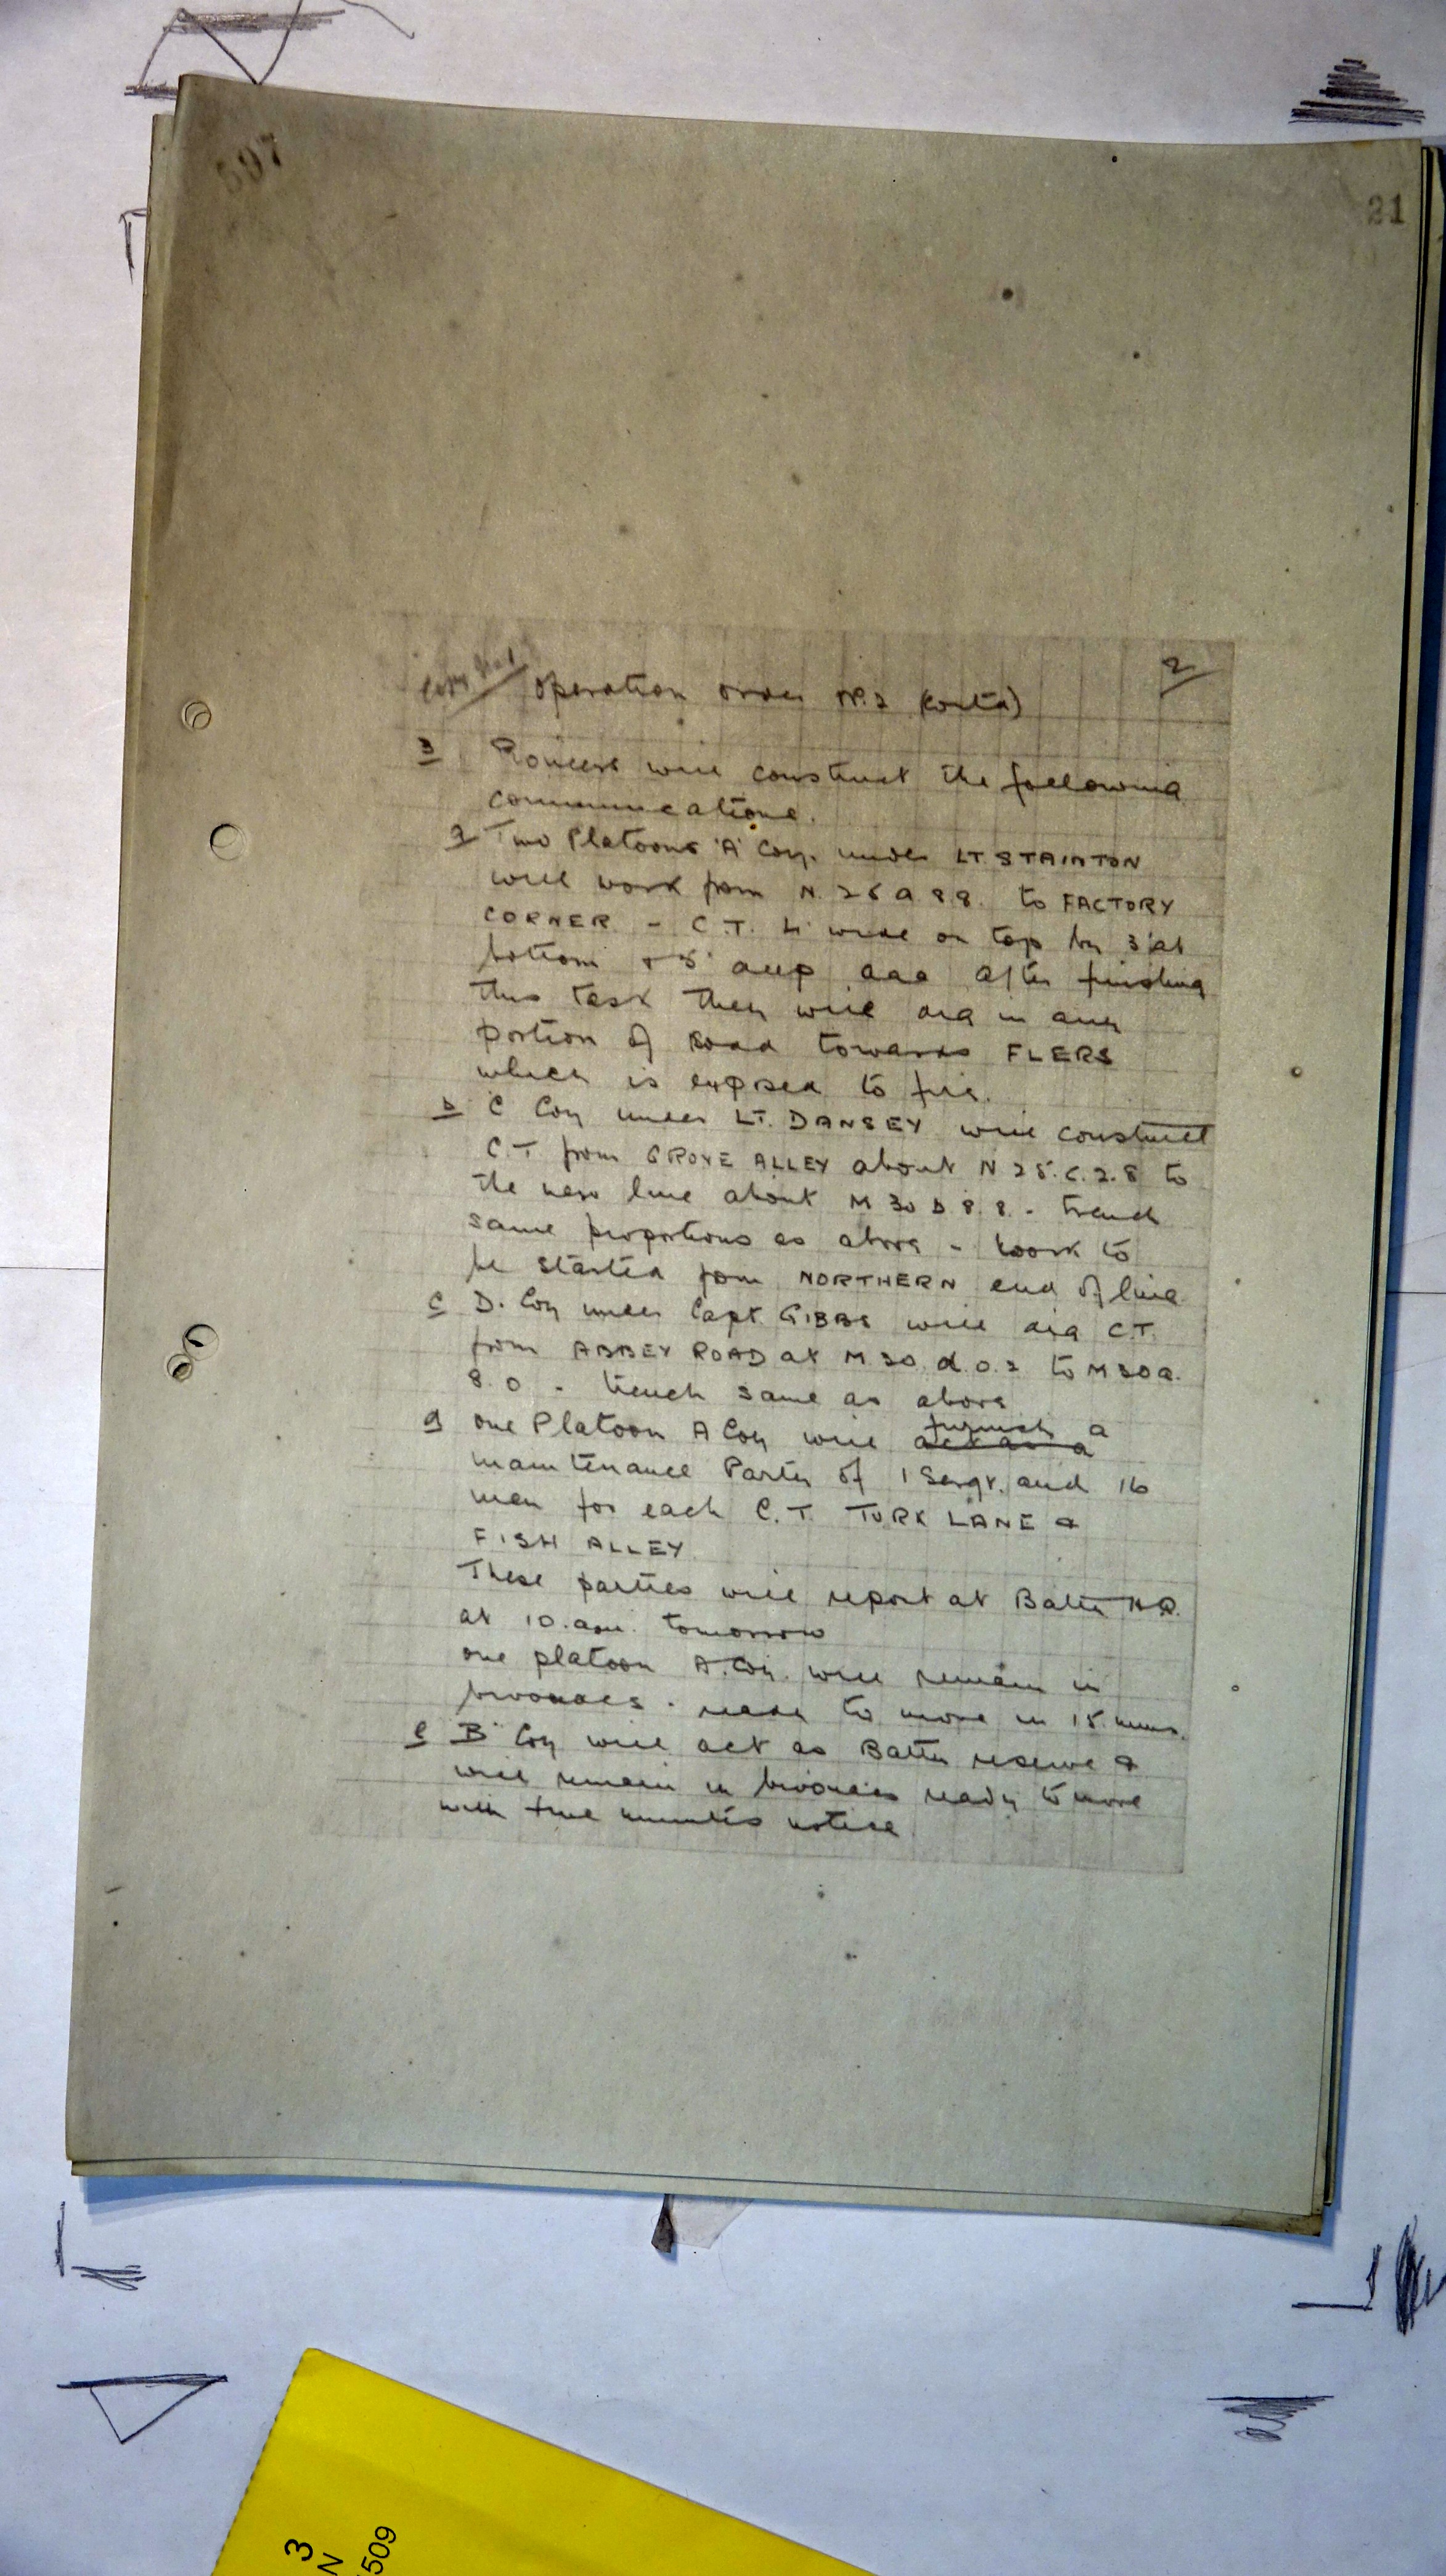 597
21
Copy No 1
Operation order No. 2 (contd)
2
3 Pioneers will construct the following
communications.
a Two Platoons 'A' Coy. under LT. STAINTON
will work from N. 26 a 8.8. to FACTORY
CORNER - C.T. 4' wide on top by 3' at
bottom & 5' deep aaa After finishing
this task they will dig in any
portion of road towards FLERS
which is exposed to fire.
b C Coy under LT. DANSEY will construct
C.T from GROVE ALLEY about N 25.c.2.8 to
the new line about M 30 b 8.8. - trench
same proportions as above - work to
be started from NORTHERN end of line
c D. Coy under Capt. GIBBS will dig C.T.
from ABBEY ROAD at M 30. d. 0.2 to M 30 a.
8.0 - trench same as above
d one Platoon A Coy will act as a furnish a
maintenance Party of 1 Sergt. and 16
men for each C.T. TURK LANE &
FISH ALLEY
These parties will report at Battn H.Q.
at 10. a.m. tomorrow
one platoon A. Coy. will remain in
bivouacs - ready to move in 15. mins.
e B Coy will act as Battn reserve &
will remain in bivouacs ready to move
with five minutes notice
3
N
509